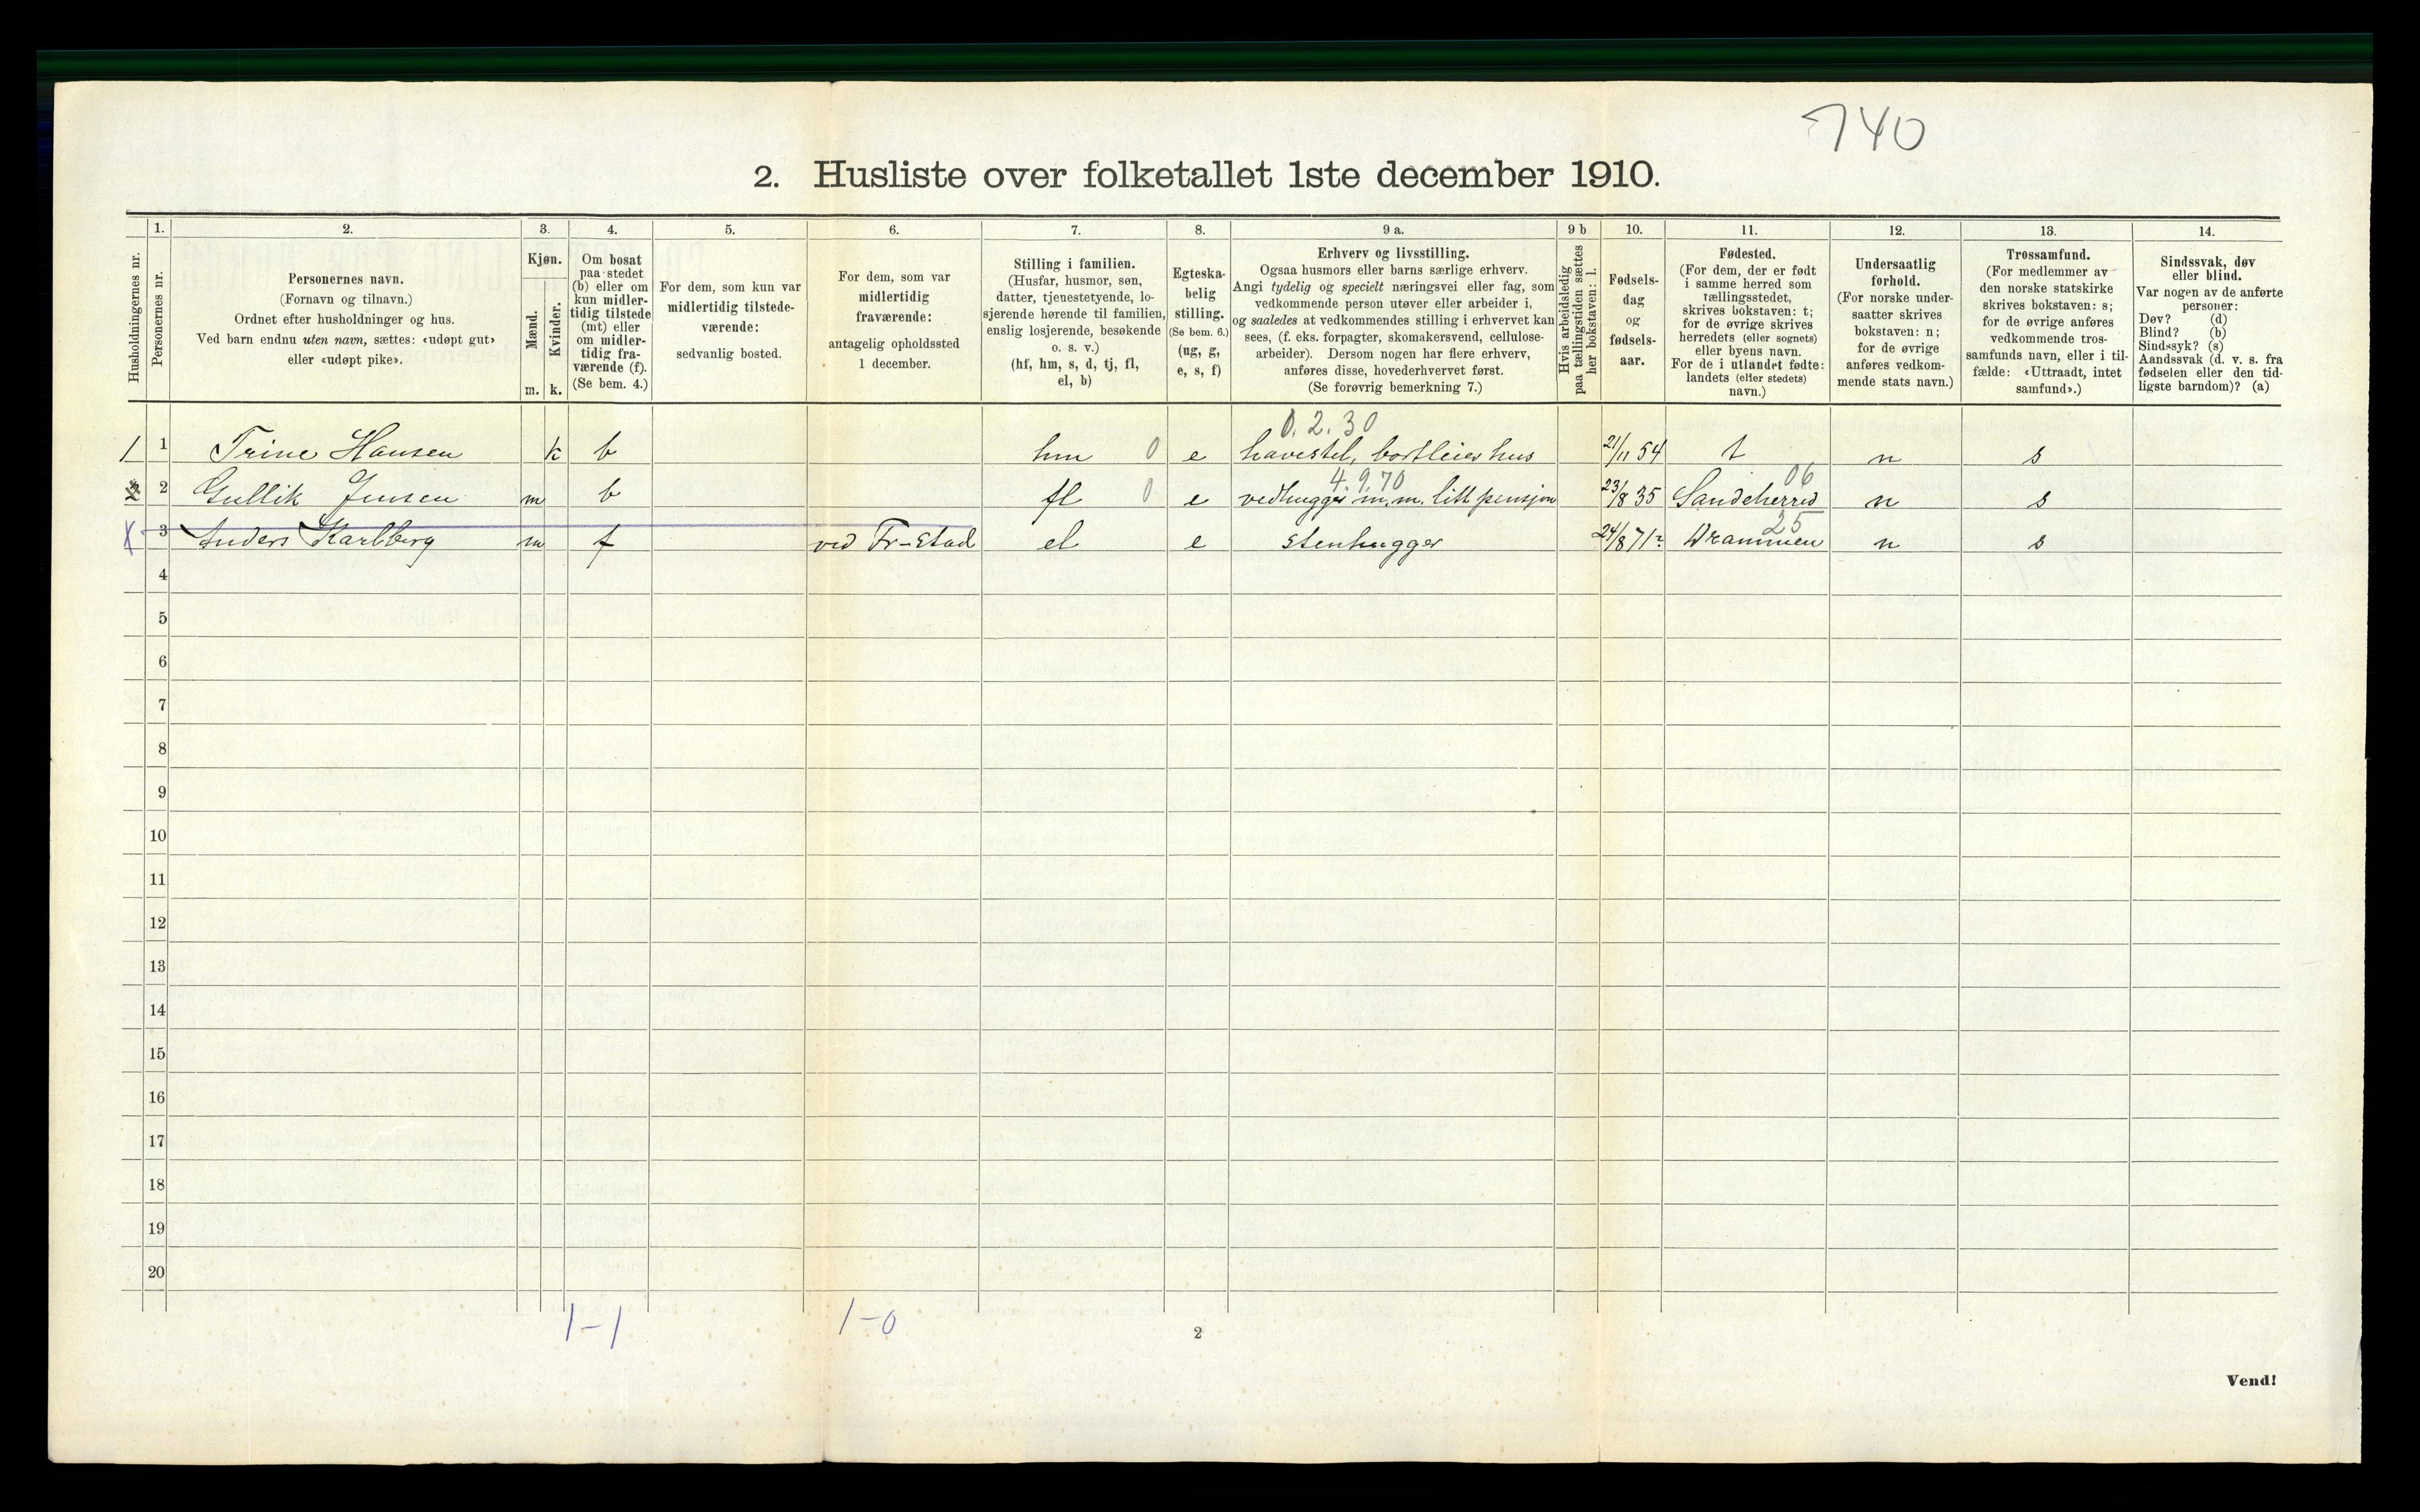 740
2. Husliste over folketallet 1ste december 1910.
Husholdningernes nr.
1.
Personernes nr.
2.
Personernes navn.
(Fornavn og tilnavn.)
Ordnet efter husholdninger og hus.
Ved barn endnu uten navn, sættes: «udøpt gut»
eller «udøpt pike».
3.
Kjøn.
Mænd.
Kvinder.
m. k.
4.
Om bosat
paa stedet
(b) eller om
kun midler-
tidig tilstede
(mt) eller
om midler-
tidig fra-
værende (f).
(Se bem. 4.)
5.
For dem, som kun var
midlertidig tilstede-
værende:
sedvanlig bosted.
6.
For dem, som var
midlertidig
fraværende:
antagelig opholdssted
1 december.
7.
Stilling i familien.
(Husfar, husmor, søn,
datter, tjenestetyende, lo-
sjerende hørende til familien,
enslig losjerende, besøkende
o. s. v.)
(hf, hm, s, d, tj, fl,
el, b)
8.
Egteska-
belig
stilling.
(Se bem. 6.)
(ug, g,
e, s, f)
9 a.
Erhverv og livsstilling.
Ogsaa husmors eller barns særlige erhverv.
Angi tydelig og specielt næringsvei eller fag, som
vedkommende person utøver eller arbeider i,
og saaledes at vedkommendes stilling i erhvervet kan
sees, (f. eks. forpagter, skomakersvend, cellulose-
arbeider). Dersom nogen har flere erhverv,
anføres disse, hovederhvervet først.
(Se forøvrig bemerkning 7.)
9 b
Hvis arbeidsledig
paa tællingstiden sættes
her bokstaven: l.
10.
Fødsels-
dag
og
fødsels-
aar.
11.
Fødested.
(For dem, der er født
i samme herred som
tællingsstedet,
skrives bokstaven: t;
for de øvrige skrives
herredets (eller sognets)
eller byens navn.
For de i utlandet fødte:
landets (eller stedets)
navn.)
12.
Undersaatlig
forhold.
(For norske under-
saatter skrives
bokstaven: n;
for de øvrige
anføres vedkom-
mende stats navn.)
13.
Trossamfund.
(For medlemmer av
den norske statskirke
skrives bokstaven: s;
for de øvrige anføres
vedkommende tros-
samfunds navn, eller i til-
fælde: «Uttraadt, intet
samfund».)
14.
Sindssvak, døv
eller blind.
Var nogen av de anførte
personer:
Døv? (d)
Blind? (b)
Sindssyk? (s)
Aandssvak (d. v. s. fra
fødselen eller den tid-
ligste barndom)? (a)
0.2.30
1 1 Trine Hansen k b hm 0 e havestel, bortleier hus 21/11 54 t n s
4.9.70 06
2 2 Gullik Jensen m b fl 0 e vedhugger m.m. litt pensjon 23/8 35 Sandeherred n s
25
X 3 Anders Karlberg m f ved Fr-stad el e stenhugger 24/8 71 Drammen n s
4
5
6
7
8
9
10
11
12
13
14
15
16
17
18
19
20
1-1 1-0
2
Vend!